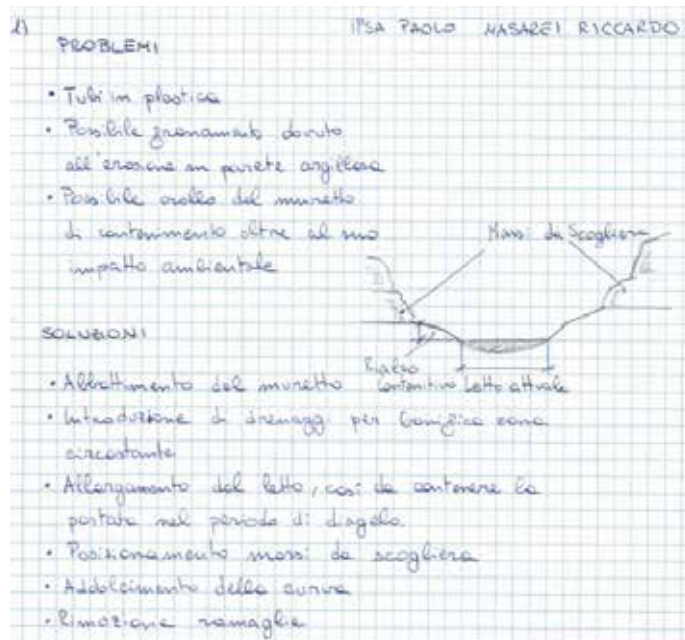 1) IPSA PAOLO MASAREI RICCARDO
PROBLEMI
• Tubi in plastica
• Possibile franamento dovuto
all'erosione su parete argillosa
• Possibile crollo del muretto
di contenimento oltre al suo
impatto ambientale
Massi da Scogliera
Rialzo
contenitivo Letto attuale
SOLUZIONI
• Abbattimento del muretto
• Introduzione di drenaggi per bonifica zona
circostante
• Allargamento del letto, così da contenere la
portata nel periodo di disgelo.
• Posizionamento massi da scogliera
• Addolcimento della curva
• Rimozione ramaglie